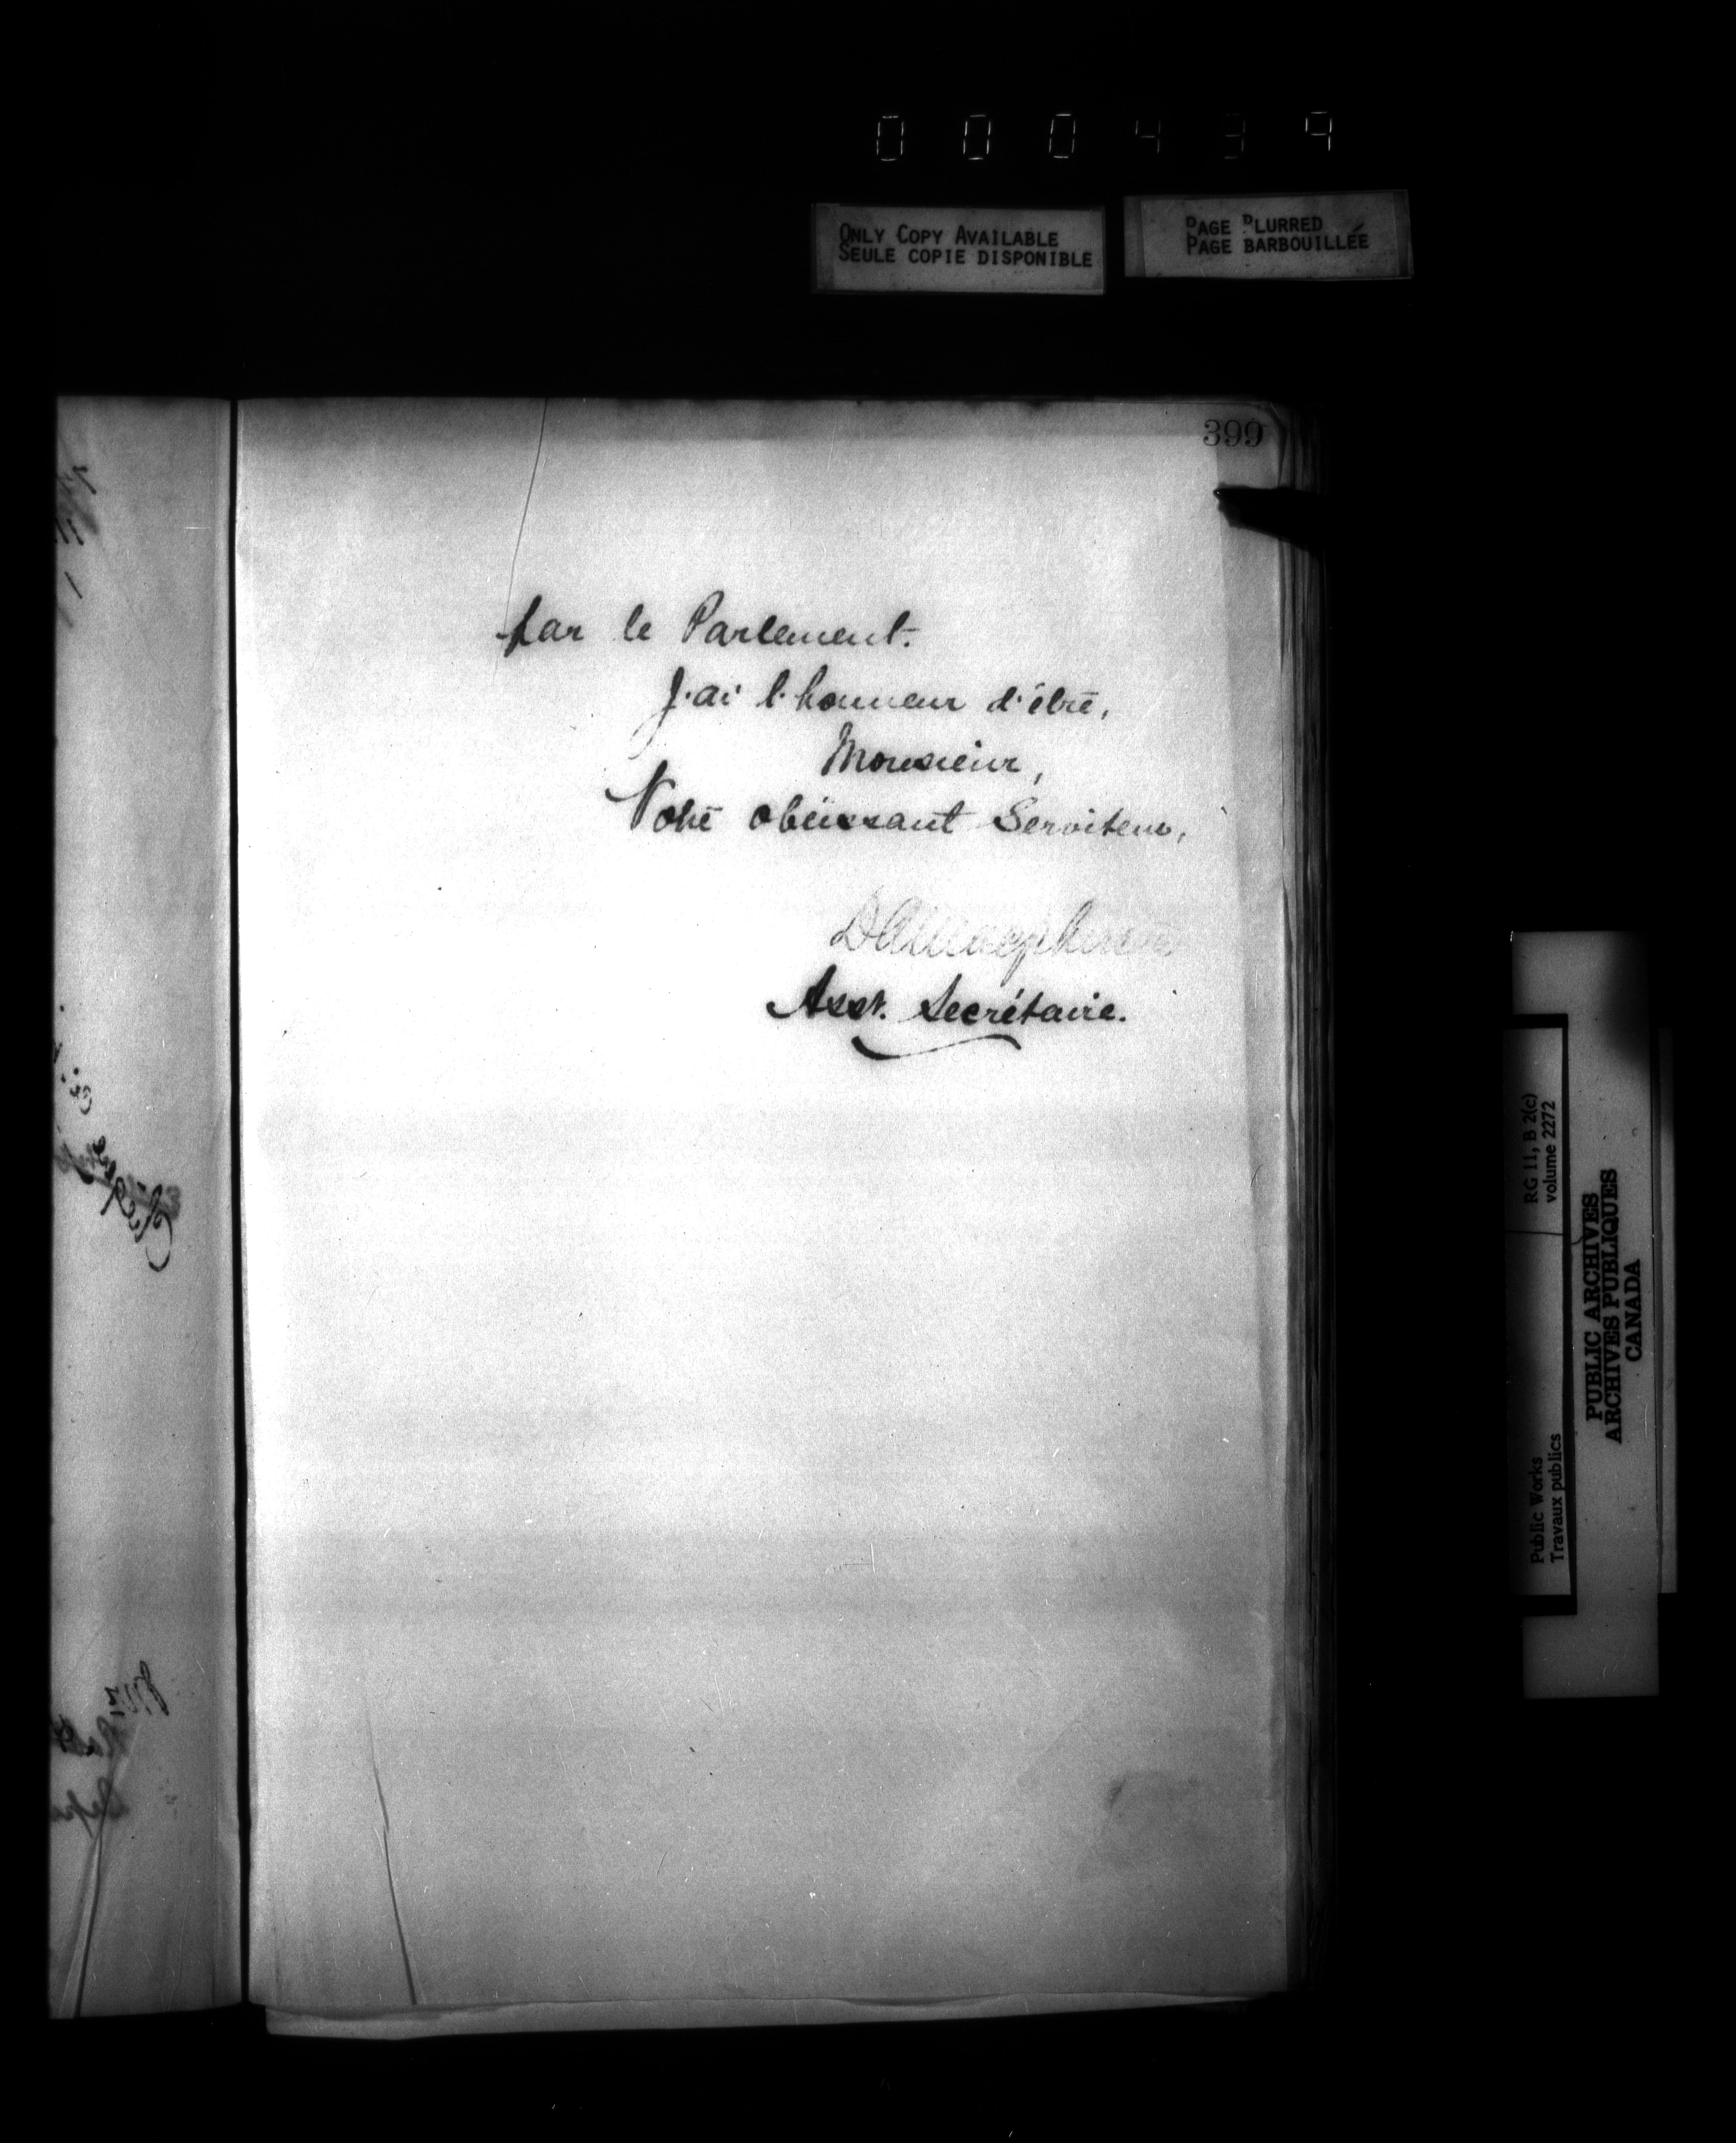 000439
ONLY COPY AVAILABLE
SEULE COPIE DISPONIBLE
PAGE BLURRED
PAGE BARBOUILLÉE
399
par le Parlement.
J'ai l'honneur d'être,
Monsieur,
Votre obéissant Serviteur,
DAMacpherson
Asst. Secrétaire.
RG 11, B 2(c)
volume 2272
Public Works
Travaux publics
PUBLIC ARCHIVES
ARCHIVES PUBLIQUES
CANADA